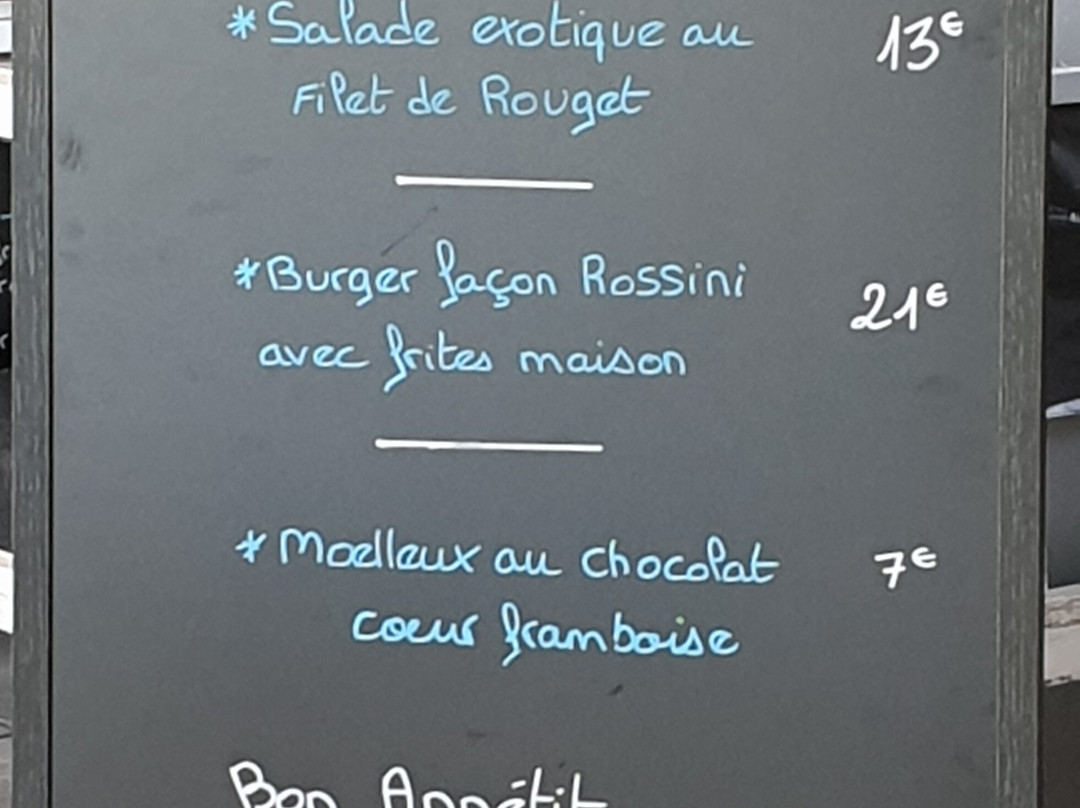 *Salade exotique au 13€
Filet de Rouget
*Burger façon Rossini 21€
avec frites maison
*Moelleux au chocolat 7€
coeur framboise
Bon Appétit